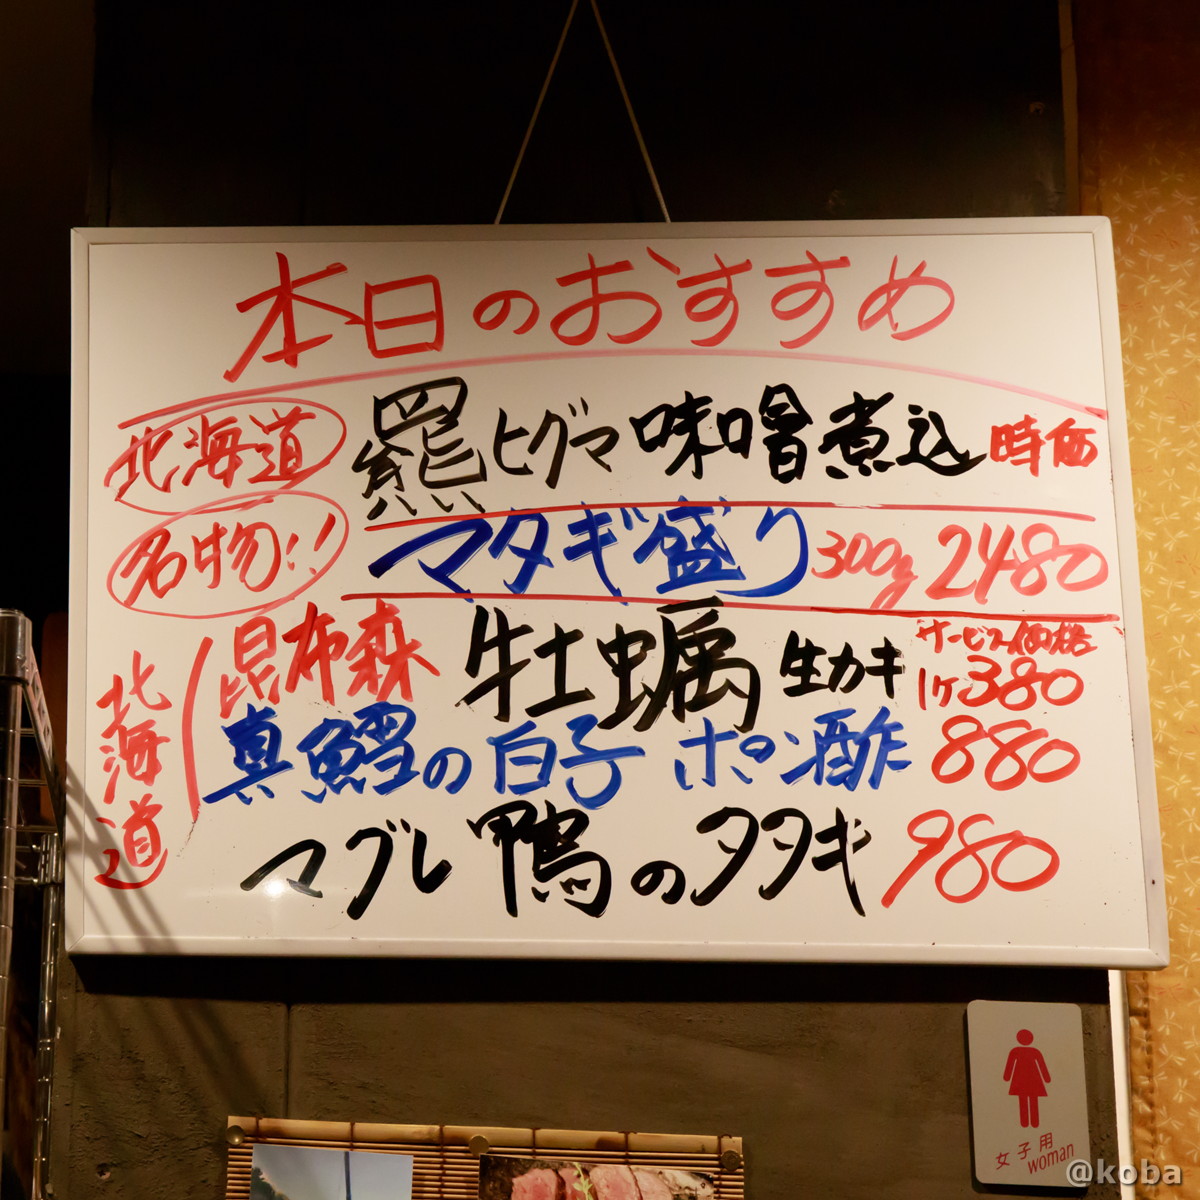 本日のおすすめ
北海道 羆ヒグマ味噌煮込 時価
名物!! マタギ盛り 300g 2480
北海道
昆布森 牡蠣 生カキ サービス価格 1ヶ380
真鱈の白子 ポン酢 880
マグレ鴨のタタキ 980
女子用
woman
@koba